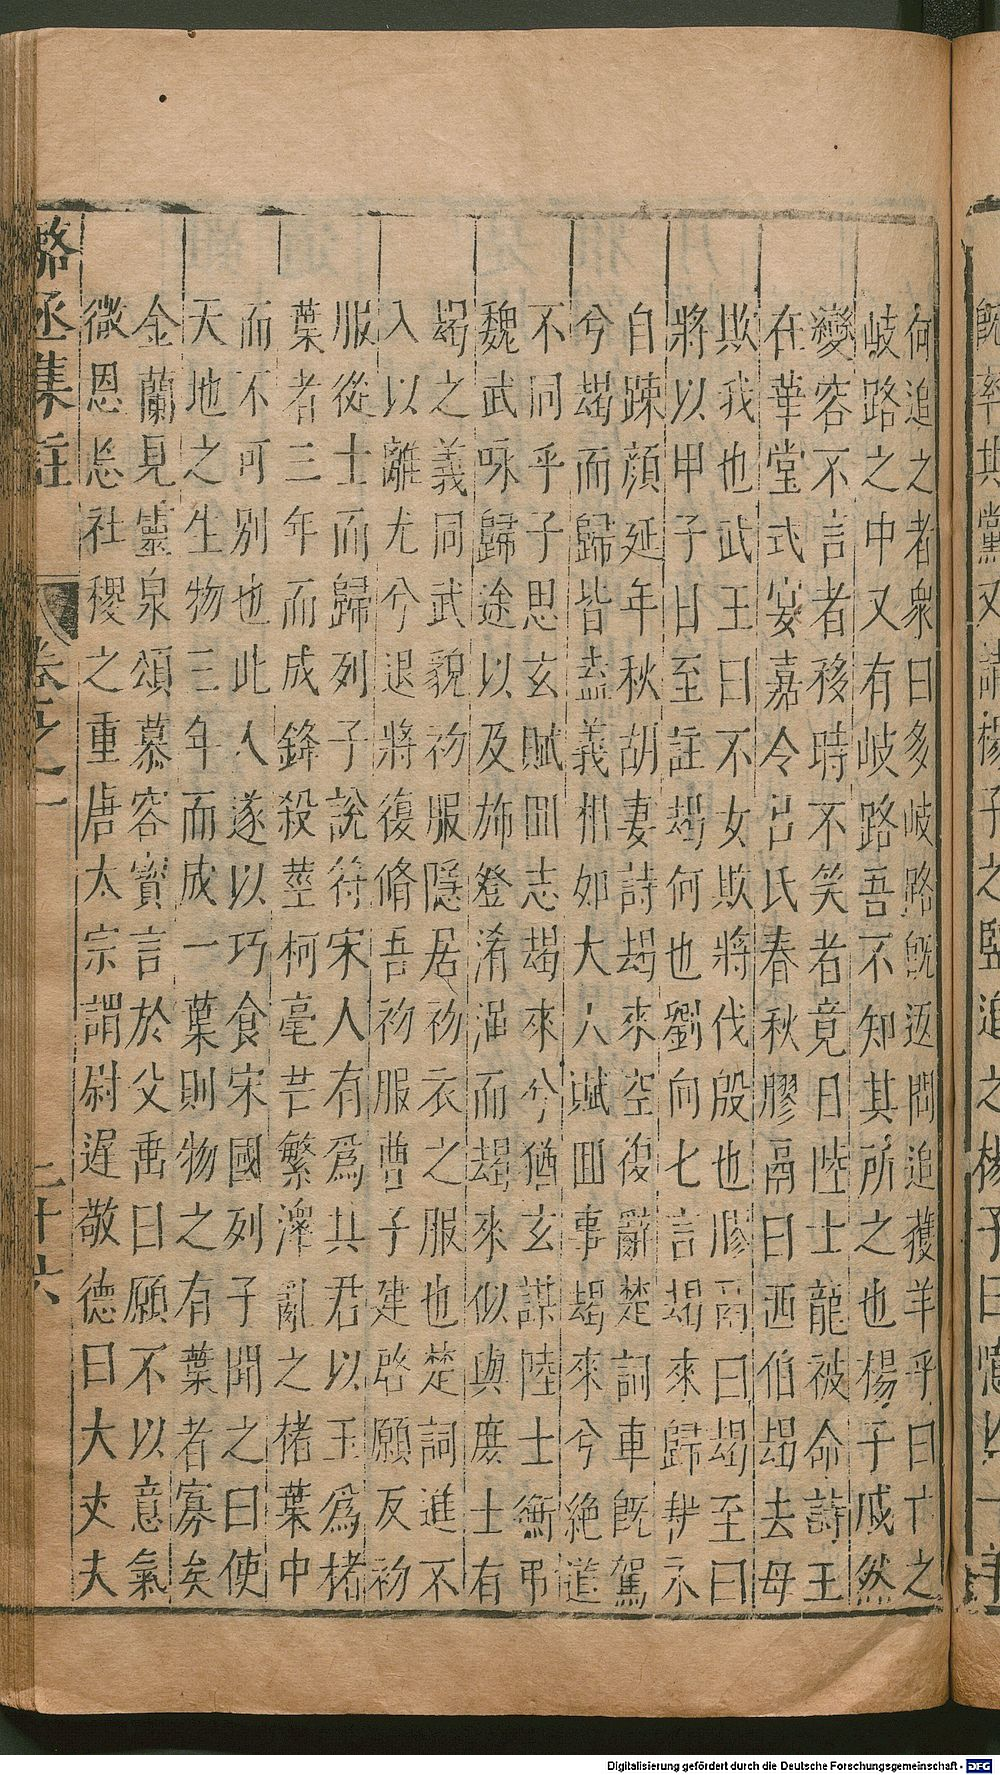 既率其黨又請楊子之豎追之楊子曰嘻亡一羊
何追之者衆曰多岐路旣返問追獲羊乎曰亡之
岐路之中又有岐路吾不知其所之也楊子戚然
變容不言者移時不笑者竟日陸士龍被命詩王
在華堂式宴嘉令呂氏春秋膠鬲曰西伯朅去母
欺我也武王曰不女欺將伐殷也膠鬲曰朅至曰
將以甲子日至註朅何也劉向七言朅來歸耕永
自踈顔延年秋胡妻詩朅來空復辭楚詞車旣駕
兮朅而歸皆盍義相如大人賦回事朅來兮絶道
不同乎子思玄賦回志朅來兮猶玄謀陸士衡弔
魏武咏歸途以及旆登淆澠而朅來似與庶士有
朅之義同武貌初服隱居初衣之服也楚詞進不
入以離尤兮退將復脩吾初服曹子建啓願反初
服從士而歸列子說符宋人有爲其君以玉爲楮
葉者三年而成鋒殺莖柯毫芒繁澤亂之楮葉中
而不可別也此人遂以巧食宋國列子聞之曰使
天地之生物三年而成一葉則物之有葉者寡矣
金蘭見靈泉頌慕容寶言於父垂曰願不以意氣
微恩忘社稷之重唐太宗謂尉遲敬德曰大丈夫
駱丞集註 卷之一 二十六
Digitalisierung gefördert durch die Deutsche Forschungsgemeinschaft - DFG